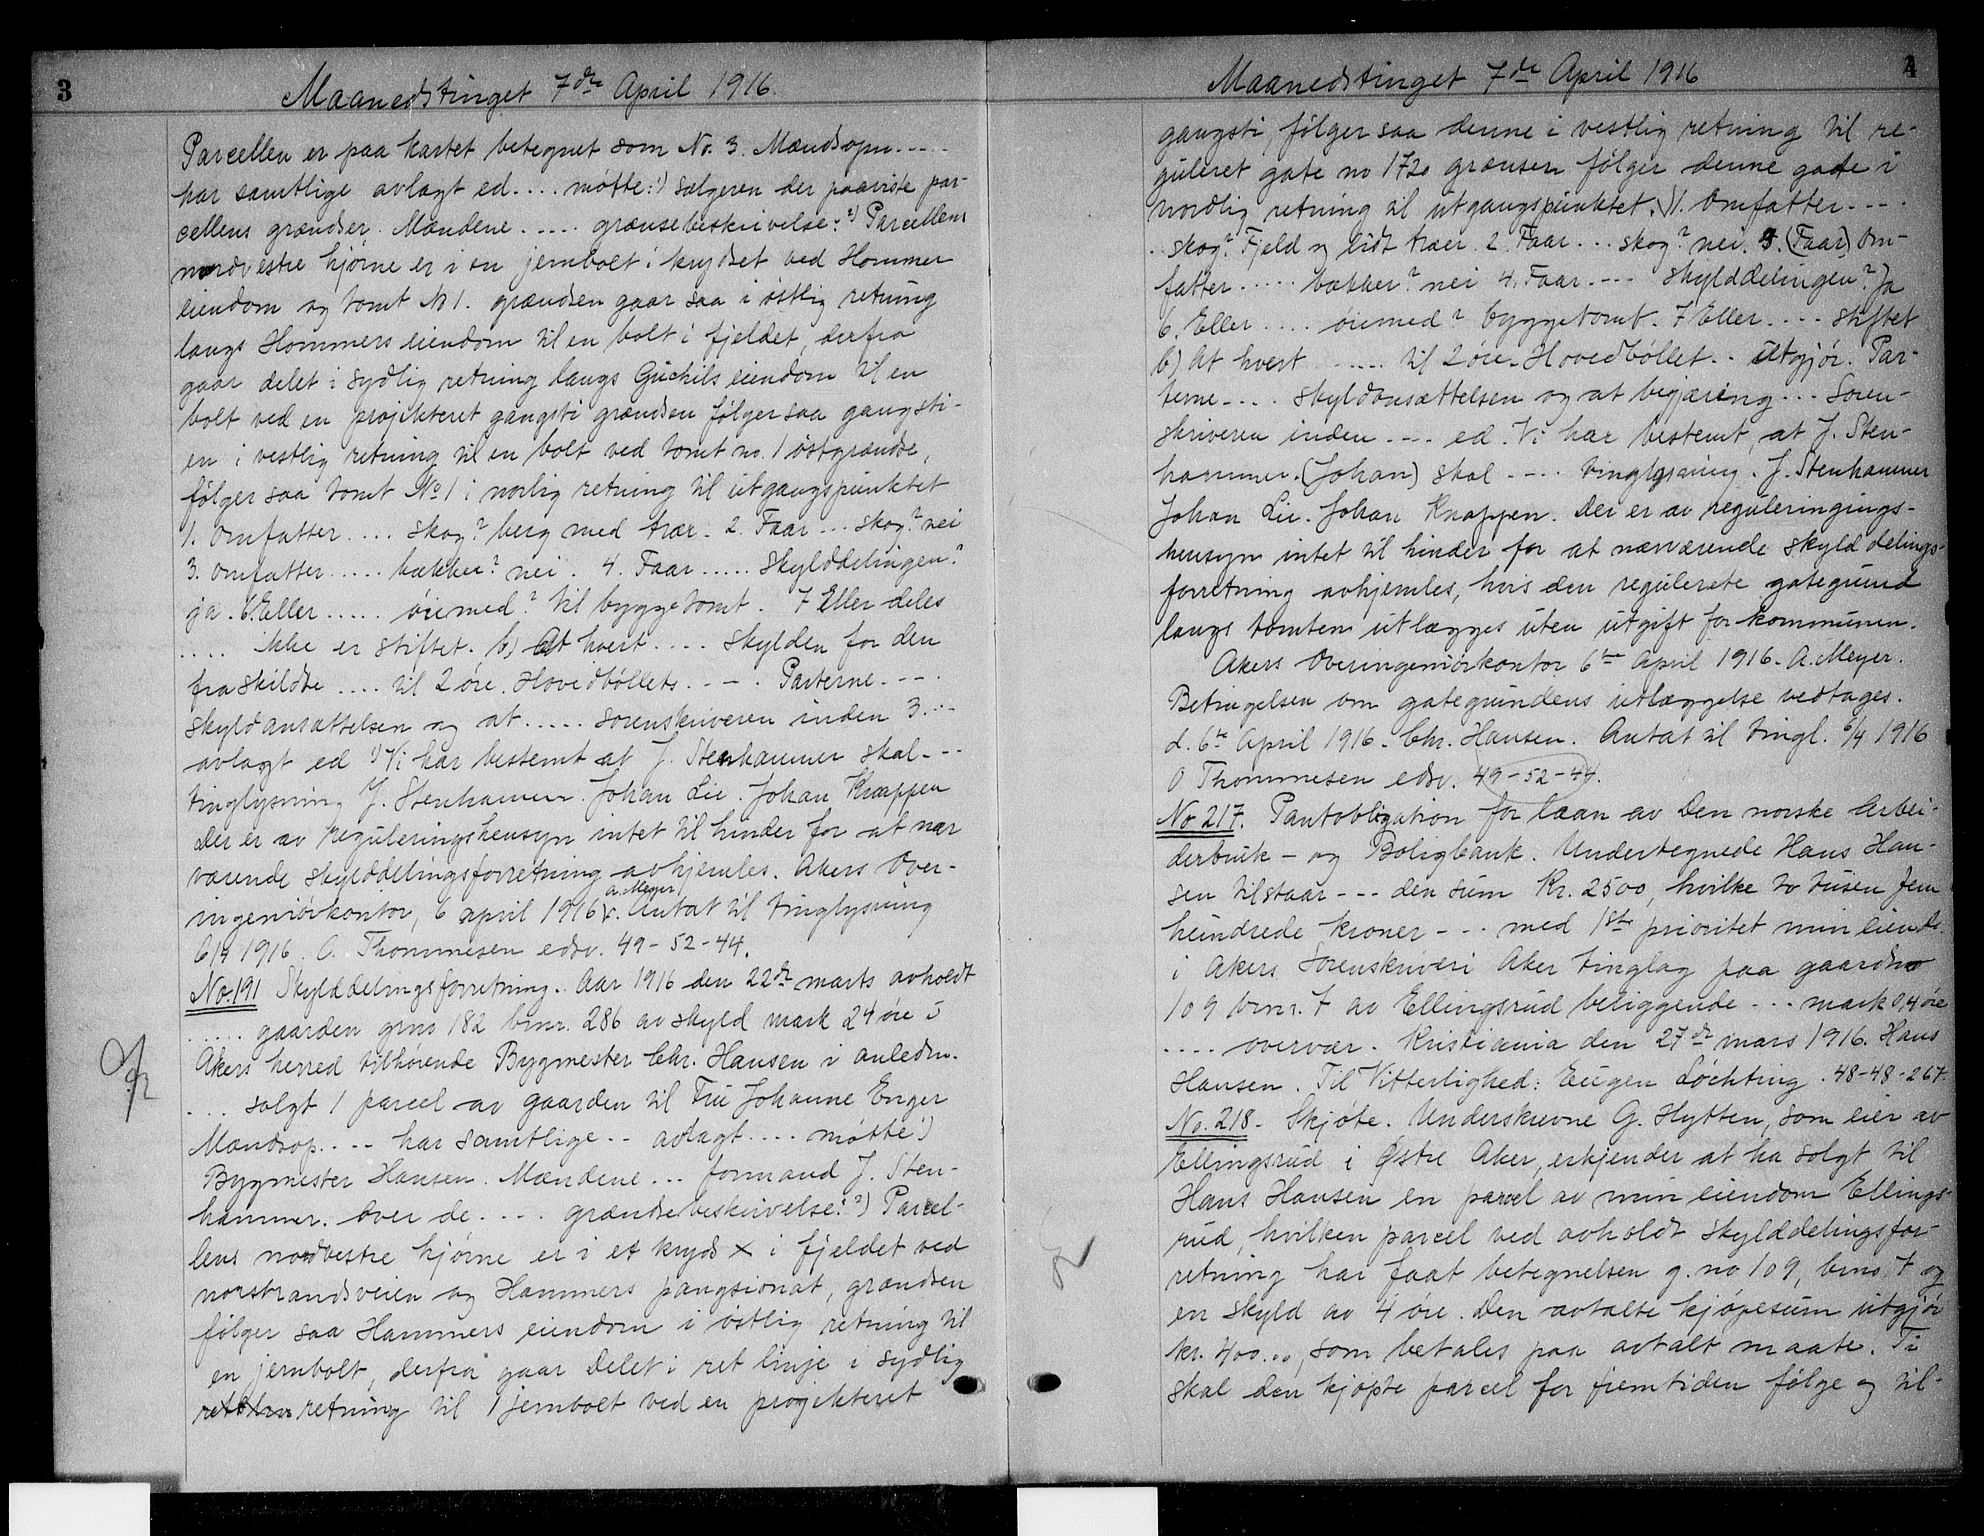 3
Maanedstinget 7de April 1916.
Parcellen er paa kartet betegnet som No. 3. Mændsopn.....
har samtlige avlagt ed.... møtte:1) Sælgeren der paaviste par-
cellens grændser. Mændene..... grænsebeskrivelse:2) Parcellens
nordvestre hjørne er i en jernbolt i krydset ved Hommer
eiendom og tomt No 1. grændsen gaar saa i østlig retning
langs Hommers eiendom til en bolt i fjeldet, derfra
gaar delet i sydlig retning langs Guchils eiendom til en
bolt ved en projekteret gangsti grændsen følger saa gangsti-
en i vestlig retning til en bolt ved tomt no. 1 østgrændse,
følger saa tomt No 1 i norlig retning til utgangspunktet
1. Omfatter.... skog? berg med trær. 2. Faar... skog? nei
3. Omfatter..... bækker? nei. 4. Faar..... Skylddelingen?
ja. 6. Eller...... øiemed? til byggetomt. 7 Eller deles
.... ikke er stiftet. b) At hvert.... Skylden for den
fraskildte.... til 2 øre. Hovedbøllets.--. Parterne---.
skyldansættelsen og at..... sorenskriveren inden 3...
avlagt ed 1) Vi har bestemt at J. Stenhammer skal---
tinglysning J. Stenhammer. Johan Lie. Johan Knappen
Der er av reguleringshensyn intet til hinder for at nær
værende skylddelingsforretning avhjemles. Akers Over-
ingeniørkontor, 6 april 1916 A. Meyer. Antat til tinglysning
6/4 1916. O. Thommesen edsv. 49-52-44.
No. 191 Skylddelingsforretning. Aar 1916 den 22de marts avholdt
..... gaarden grno 182 brnr. 286 av skyld mark 24 øre i
Akers herred tilhørende Bygmester Chr. Hansen i anledn.
... solgt 1 parcel av gaarden til Fru Johanne Enger
Mændsop.... har samtlige.. avlagt.... møtte 1)
Bygmester Hansen. Mændene... formand J. Sten-
hammer. Over de.... grændsebeskrivelse:2) Parcel-
lens nordvestre hjørne er i et kryds x i fjeldet ved
norstrandsveien og Hammers pangsionat, grændsen
følger saa Hammers eiendom i østlig retning til
en jernbolt, derfra gaar Delet i ret linje i sydlig
retning til 1 jernbolt ved en projekteret
4
Maanedstinget 7de April 1916
gangsti, følger saa denne i vestlig retning til re-
guleret gate no 172, grænsen følger denne gade i
nordlig retning til utgangspunktet. 1. Omfatter---.
.. skog? Fjeld og lidt træer. 2. Faar... skog? nei. 3. (Faar) Om-
fatter..... bækker? nei 4. Faar.--- skylddelingen? Ja
6. Eller.... øiemed? byggetomt. 7 Eller.... stiftet
b) At hvert...... til 2 øre. Hovedbøllet.. utgjør. Par-
terne---. skyldansættelsen og at begjæring... Soren-
skriveren inden.--- ed. Vi har bestemt, at J. Sten-
hammer. (Johan) skal.--. tinglysning. J. Stenhammer
Johan Lie. Johan Knappen. Der er av reguleringings-
hensyn intet til hinder for at nærværende skylddelings-
forretning avhjemles, hvis den regulerete gategrund
langs tomten utlægges uten utgift for kommunen.
Akers Overingeniørkontor 6te April 1916. A. Meyer.
Betingelsen om gategrundens utlæggelse vedtages.
d. 6te April 1916. Chr. Hansen. Antat til tingl. 6/4 1916
O Thommesen edsv. 49-52-44.
No 217. Pantobligation for laan av Den norske Arbei-
derbruk- og Boligbank. Undertegnede Hans Han-
sen tilstaar--- den sum Kr. 2500, hvilke to tusen fem
hundrede kroner--- med 1ste prioritet min eiend.
i Akers Sorenskriveri Aker tinglag paa gaardno
109 brnr. 7 av Ellingsrud beliggende--- mark 0,4 øre
.... overvær. Kristiania den 27de mars 1916. Hans
Hansen. Til Vitterlighed: Eugen Løchting. 48-48-267.
No. 218. Skjøte. Underskrevne G. Hytten, som eier av
Ellingsrud i Østre Aker, erkjender at ha solgt til
Hans Hansen en parcel av min eiendom Ellings-
rud, hvilken parcel ved avholdt skylddelingsfor-
retning har faat betegnelsen g. no 109, brno 7 og
en skyld av 4 øre. Den avtalte kjøpesum utgjør
kr. 400.00, som betales paa avtalt maate. Ti
skal den kjøpte parcel for fremtiden følge og til-